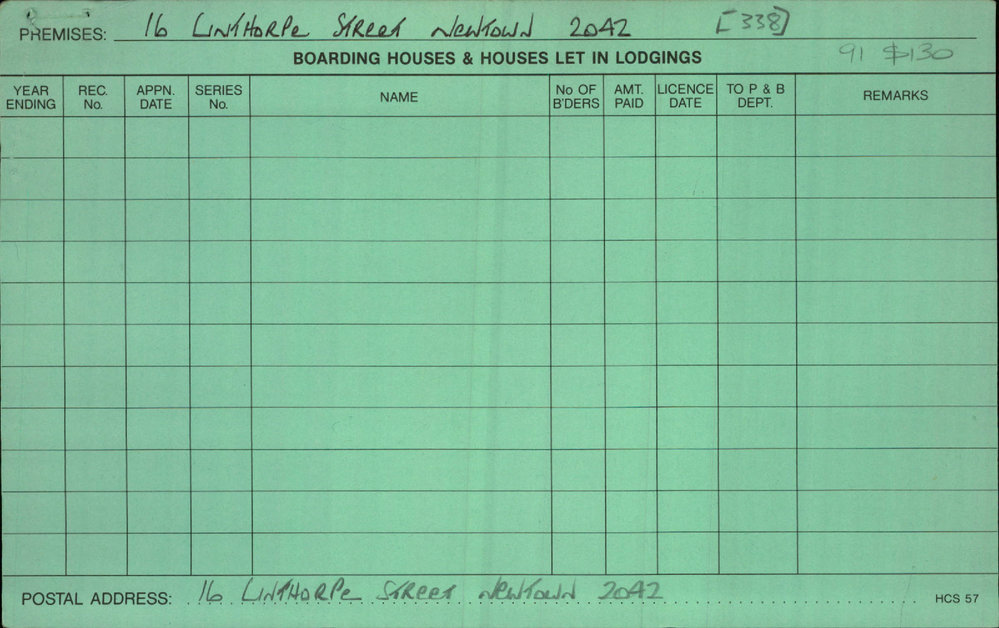 PREMISES: 16 LINTHORPE STREET NEWTOWN 2042 [338]
BOARDING HOUSES & HOUSES LET IN LODGINGS 91 $130
YEAR ENDING REC. No. APPN. DATE SERIES No. NAME No OF B'DERS AMT. PAID LICENCE DATE TO P & B DEPT. REMARKS
POSTAL ADDRESS: 16 LINTHORPE STREET NEWTOWN 2042 HCS 57